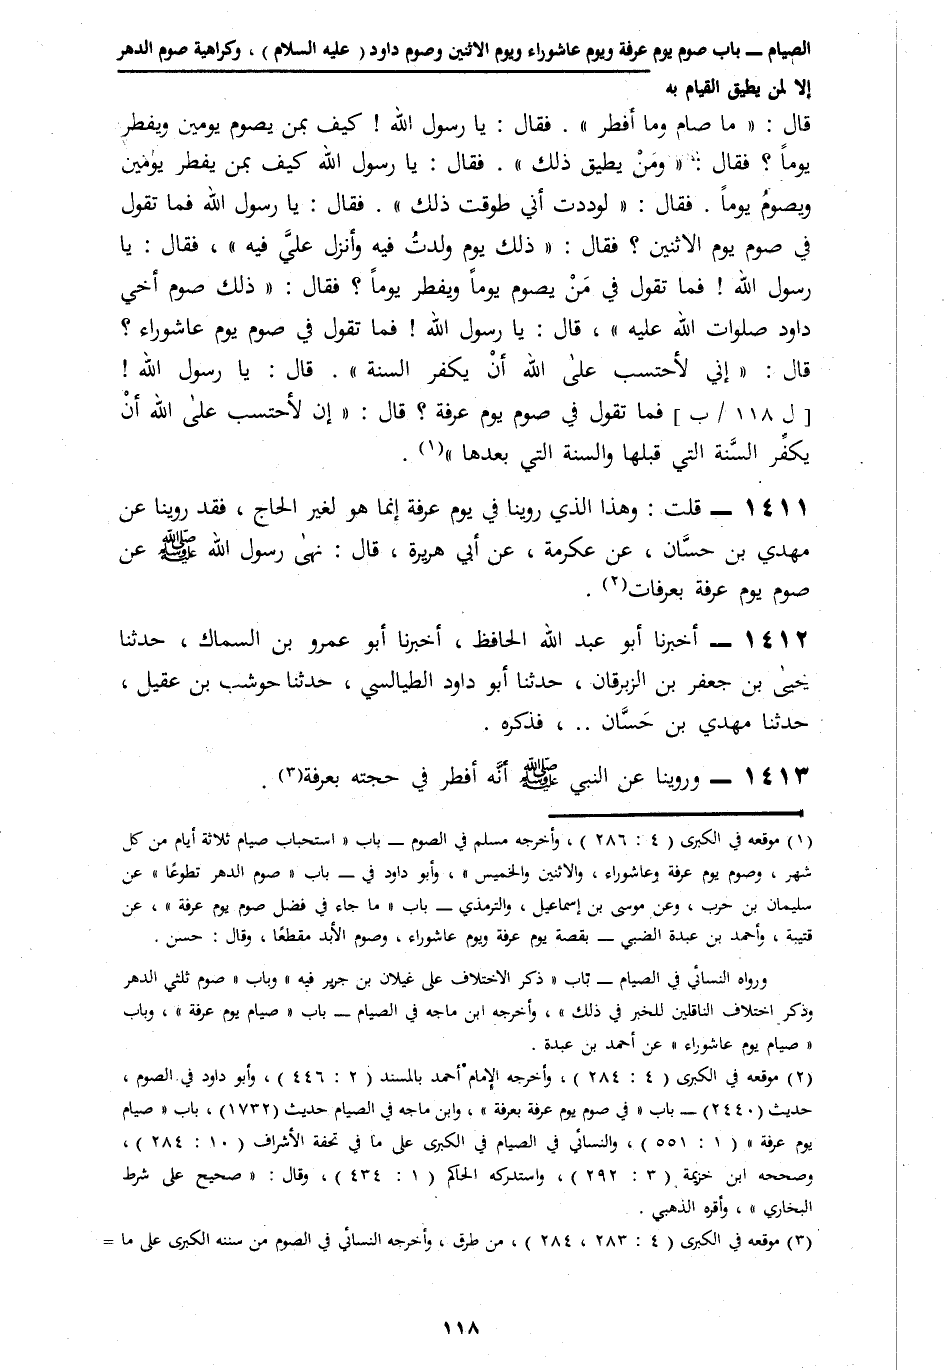 الصيام ــ باب صوم يوم عرفة ويوم عاشوراء ويوم الاثنين وصوم داود ( عليه السلام ) ، وكراهية صوم الدهر
إلا لمن يطيق القيام به
قال : « ما صام وما أفطر » . فقال : يا رسول الله ! كيف بمن يصوم يومين ويفطر
يوماً ؟ فقال : « ومَنْ يطيق ذلك » . فقال : يا رسول الله كيف بمن يفطر يومين
ويصومُ يوماً . فقال : « لوددت أني طوقت ذلك » . فقال : يا رسول الله فما تقول
في صوم يوم الاثنين ؟ فقال : « ذلك يوم ولدتُ فيه وأنزل عليَّ فيه » ، فقال : يا
رسول الله ! فما تقول في مَنْ يصوم يوماً ويفطر يوماً ؟ فقال : « ذلك صوم أخي
داود صلوات الله عليه » ، قال : يا رسول الله ! فما تقول في صوم يوم عاشوراء ؟
قال : « إني لأحتسب علىٰ الله أنْ يكفر السنة » . قال : يا رسول الله !
[ ل ١١٨ / ب ] فما تقول في صوم يوم عرفة ؟ قال : « إن لأحتسب علىٰ الله أنْ
يكفِّر السَّنة التي قبلها والسنة التي بعدها »(١) .
١٤١١ ــ قلت : وهذا الذي روينا في يوم عرفة إنما هو لغير الحاج ، فقد روينا عن
مهدي بن حسَّان ، عن عكرمة ، عن أبي هريرة ، قال : نهىٰ رسول الله ﷺ عن
صوم يوم عرفة بعرفات(٢) .
١٤١٢ ــ أخبرنا أبو عبد الله الحافظ ، أخبرنا أبو عمرو بن السماك ، حدثنا
يحيىٰ بن جعفر بن الزبرقان ، حدثنا أبو داود الطيالسي ، حدثنا حوشب بن عقيل ،
حدثنا مهدي بن حَسَّان .. ، فذكره .
١٤١٣ ــ وروينا عن النبي ﷺ أنَّه أفطر في حجته بعرفة(٣) .
(١) موقعه في الكبرى ( ٤ : ٢٨٦ ) ، وأخرجه مسلم في الصوم ــ باب « استحباب صيام ثلاثة أيام من كل
شهر ، وصوم يوم عرفة وعاشوراء ، والاثنين والخميس » ، وأبو داود في ــ باب « صوم الدهر تطوعًا » عن
سليمان بن حرب ، وعن موسى بن إسماعيل ، والترمذي ــ باب « ما جاء في فضل صوم يوم عرفة » ، عن
قتيبة ، وأحمد بن عبدة الضبي ــ بقصة يوم عرفة ويوم عاشوراء ، وصوم الأبد مقطعًا ، وقال : حسن .
ورواه النسائي في الصيام ــ باب « ذكر الاختلاف على غيلان بن جرير فيه » وباب « صوم ثلثي الدهر
وذكر اختلاف الناقلين للخبر في ذلك » ، وأخرجه ابن ماجه في الصيام ــ باب « صيام يوم عرفة » ، وباب
« صيام يوم عاشوراء » عن أحمد بن عبدة .
(٢) موقعه في الكبرى ( ٤ : ٢٨٤ ) ، وأخرجه الإمام أحمد بالمسند ( ٢ : ٤٤٦ ) ، وأبو داود في الصوم ،
حديث (٢٤٤٠) ــ باب « في صوم يوم عرفة بعرفة » ، وابن ماجه في الصيام حديث (١٧٣٢) ، باب « صيام
يوم عرفة » ( ١ : ٥٥١ ) ، والنسائي في الصيام في الكبرى على ما في تحفة الأشراف ( ١٠ : ٢٨٤ ) ،
وصححه ابن خزيمة ( ٣ : ٢٩٢ ) ، واستدركه الحاكم ( ١ : ٤٣٤ ) ، وقال : « صحيح على شرط
البخاري » ، وأقره الذهبي .
(٣) موقعه في الكبرى ( ٤ : ٢٨٣ ، ٢٨٤ ) ، من طرق ، وأخرجه النسائي في الصوم من سننه الكبرى على ما =
١١٨